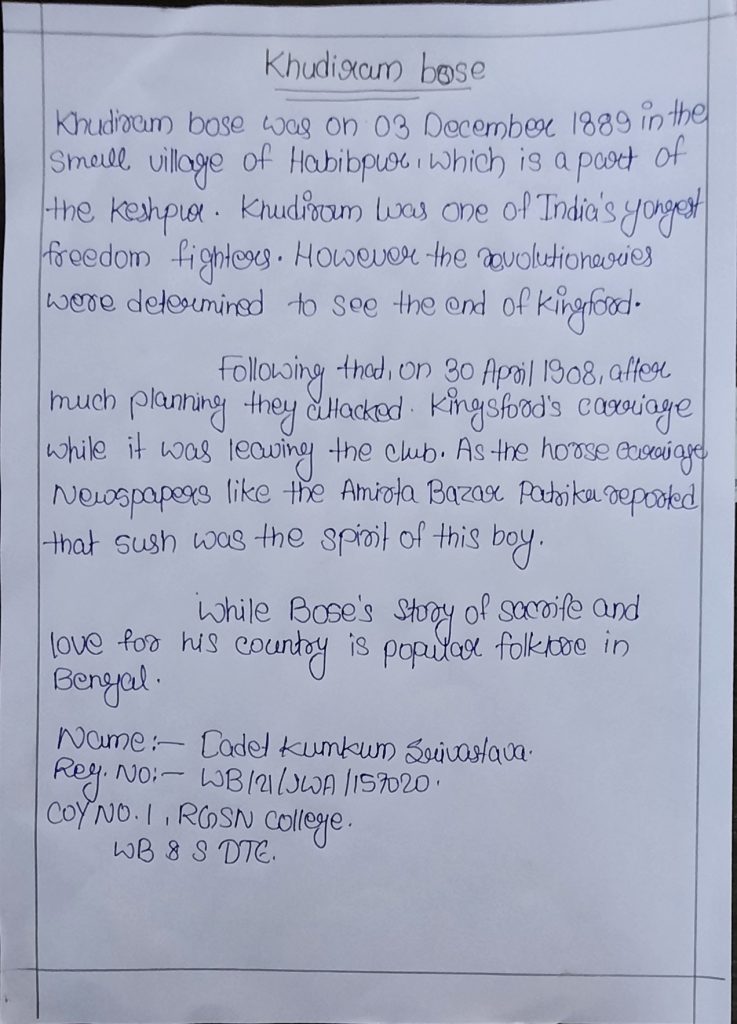 Khudiram bose
Khudiram bose was on 03 December 1889 in the
small village of Habibpur, which is a part of
the keshpur. Khudiram was one of India's yongest
freedom fighters. However the revolutionaries
were determined to see the end of kingford.
Following thad, on 30 April 1908, after
much planning they attacked. Kingsford's carriage
while it was leaving the club. As the horse carriage
Newspapers like the Amirta Bazar Patrika reported
that sush was the spirit of this boy.
While Bose's story of sacrife and
love for his country is popular folklore in
Bengal.
Name:- Cadet Kumkum Srivastava.
Reg. No:- WB/21/JWA/157020.
COY NO. 1, RGSN College.
WB & S DTE.